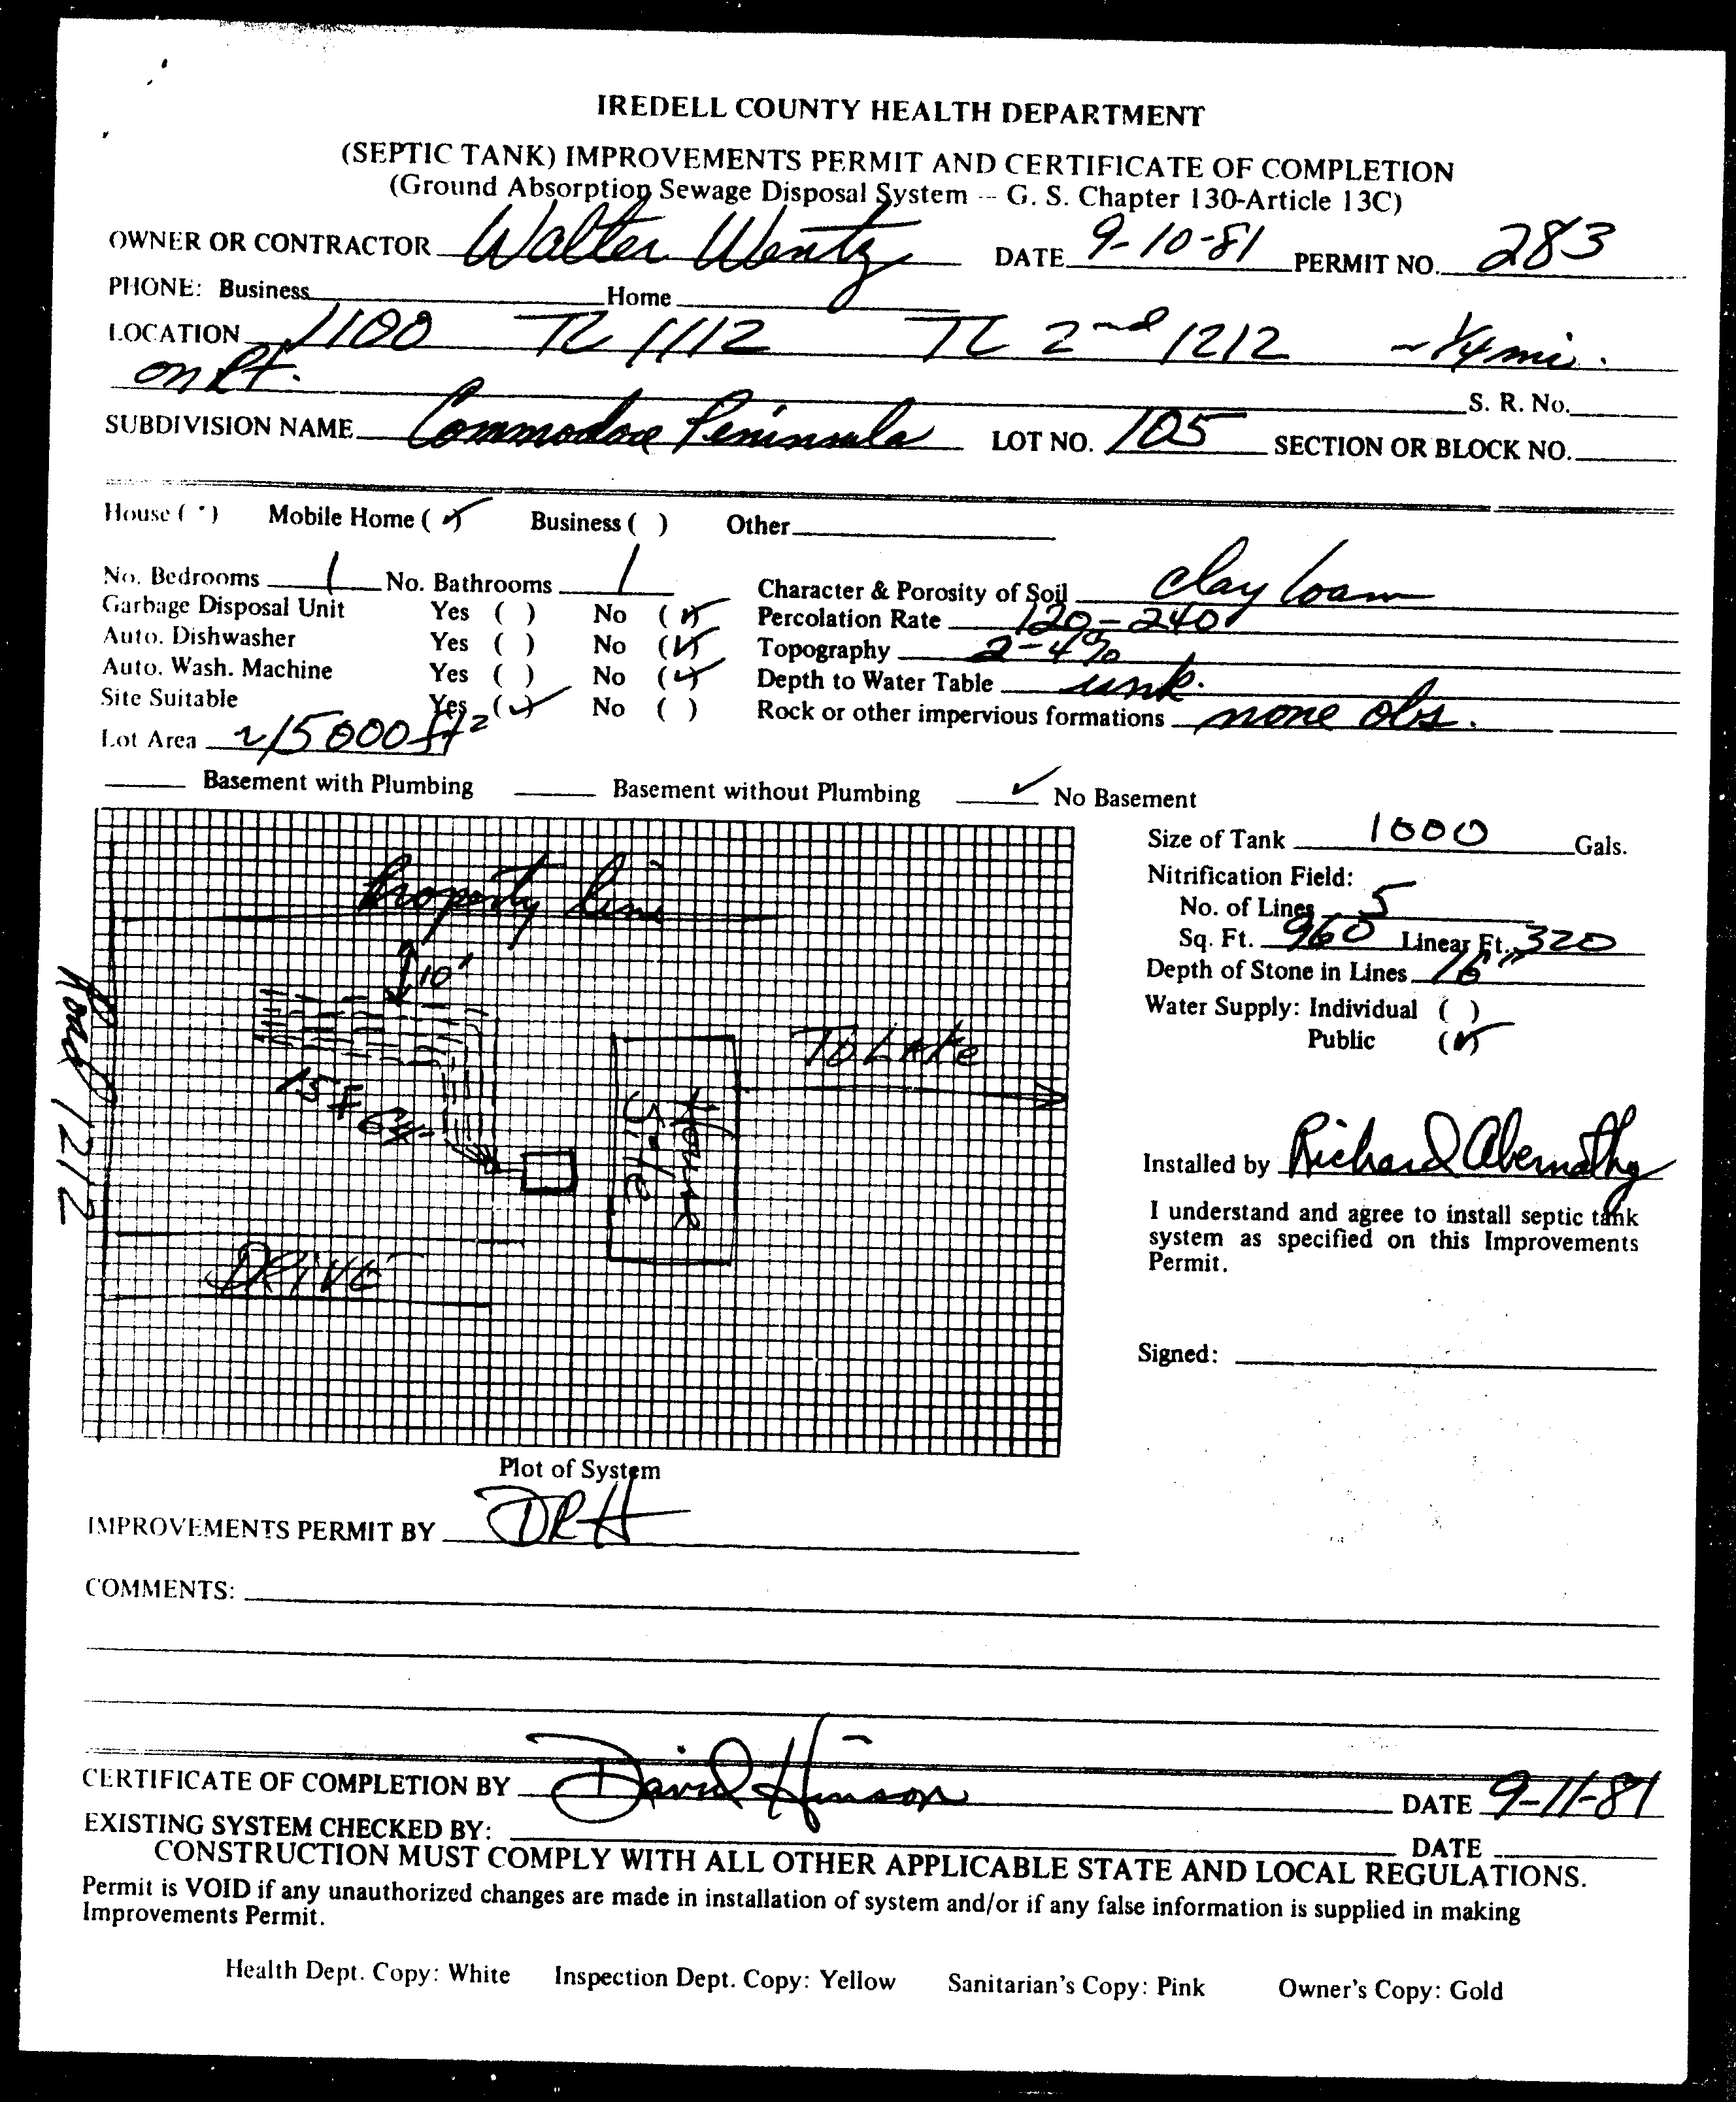 IREDELL COUNTY HEALTH DEPARTMENT
(SEPTIC TANK) IMPROVEMENTS PERMIT AND CERTIFICATE OF COMPLETION
(Ground Absorption Sewage Disposal System -- G. S. Chapter 130-Article 13C)
OWNER OR CONTRACTOR Walter Wentz DATE 9-10-81 PERMIT NO. 283
PHONE: Business Home
LOCATION 1100 TL 1112 TL 2nd 1212 ~ 1/4 mi.
on Rt.
S. R. No.
SUBDIVISION NAME Commodore Peninsula LOT NO. 105 SECTION OR BLOCK NO.
House ( ) Mobile Home (✓) Business ( ) Other
No. Bedrooms 1 No. Bathrooms 1 Character & Porosity of Soil clay loam
Garbage Disposal Unit Yes ( ) No (✓) Percolation Rate 120-240
Auto. Dishwasher Yes ( ) No (✓) Topography 2-4%
Auto. Wash. Machine Yes ( ) No (✓) Depth to Water Table unk.
Site Suitable Yes (✓) No ( ) Rock or other impervious formations none obs.
Lot Area ~15000 ft²
Basement with Plumbing Basement without Plumbing ✓ No Basement
Size of Tank 1000 Gals.
Nitrification Field:
No. of Lines 5
Sq. Ft. 960 Linear Ft. 320
Depth of Stone in Lines 16"
Water Supply: Individual ( )
Public (✓)
Property Line
10'
Road 1212
To Lake
House
Site
DRIVE
Installed by Richard Abernathy
I understand and agree to install septic tank
system as specified on this Improvements
Permit.
Signed:
Plot of System
IMPROVEMENTS PERMIT BY DRH
COMMENTS:
CERTIFICATE OF COMPLETION BY David Hinson DATE 9-11-81
EXISTING SYSTEM CHECKED BY: DATE
CONSTRUCTION MUST COMPLY WITH ALL OTHER APPLICABLE STATE AND LOCAL REGULATIONS.
Permit is VOID if any unauthorized changes are made in installation of system and/or if any false information is supplied in making
Improvements Permit.
Health Dept. Copy: White Inspection Dept. Copy: Yellow Sanitarian's Copy: Pink Owner's Copy: Gold